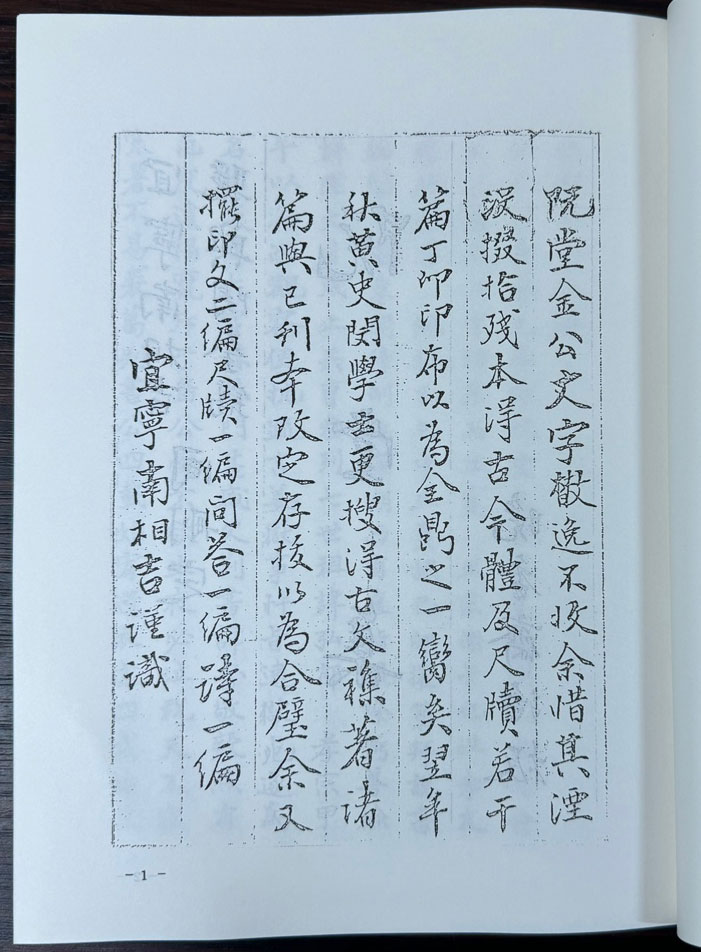 阮堂金公文字散逸不收余惜其湮
沒掇拾殘本得古今體及尺牘若干
篇丁卯印布以為全鼎之一臠矣翌年
秋黃史閔學士更搜得古文雜著諸
篇與已刊本改定存拔以為合璧余又
擺印文二編尺牘一編問答一編詩一編
宜寧南相吉謹識
- 1 -